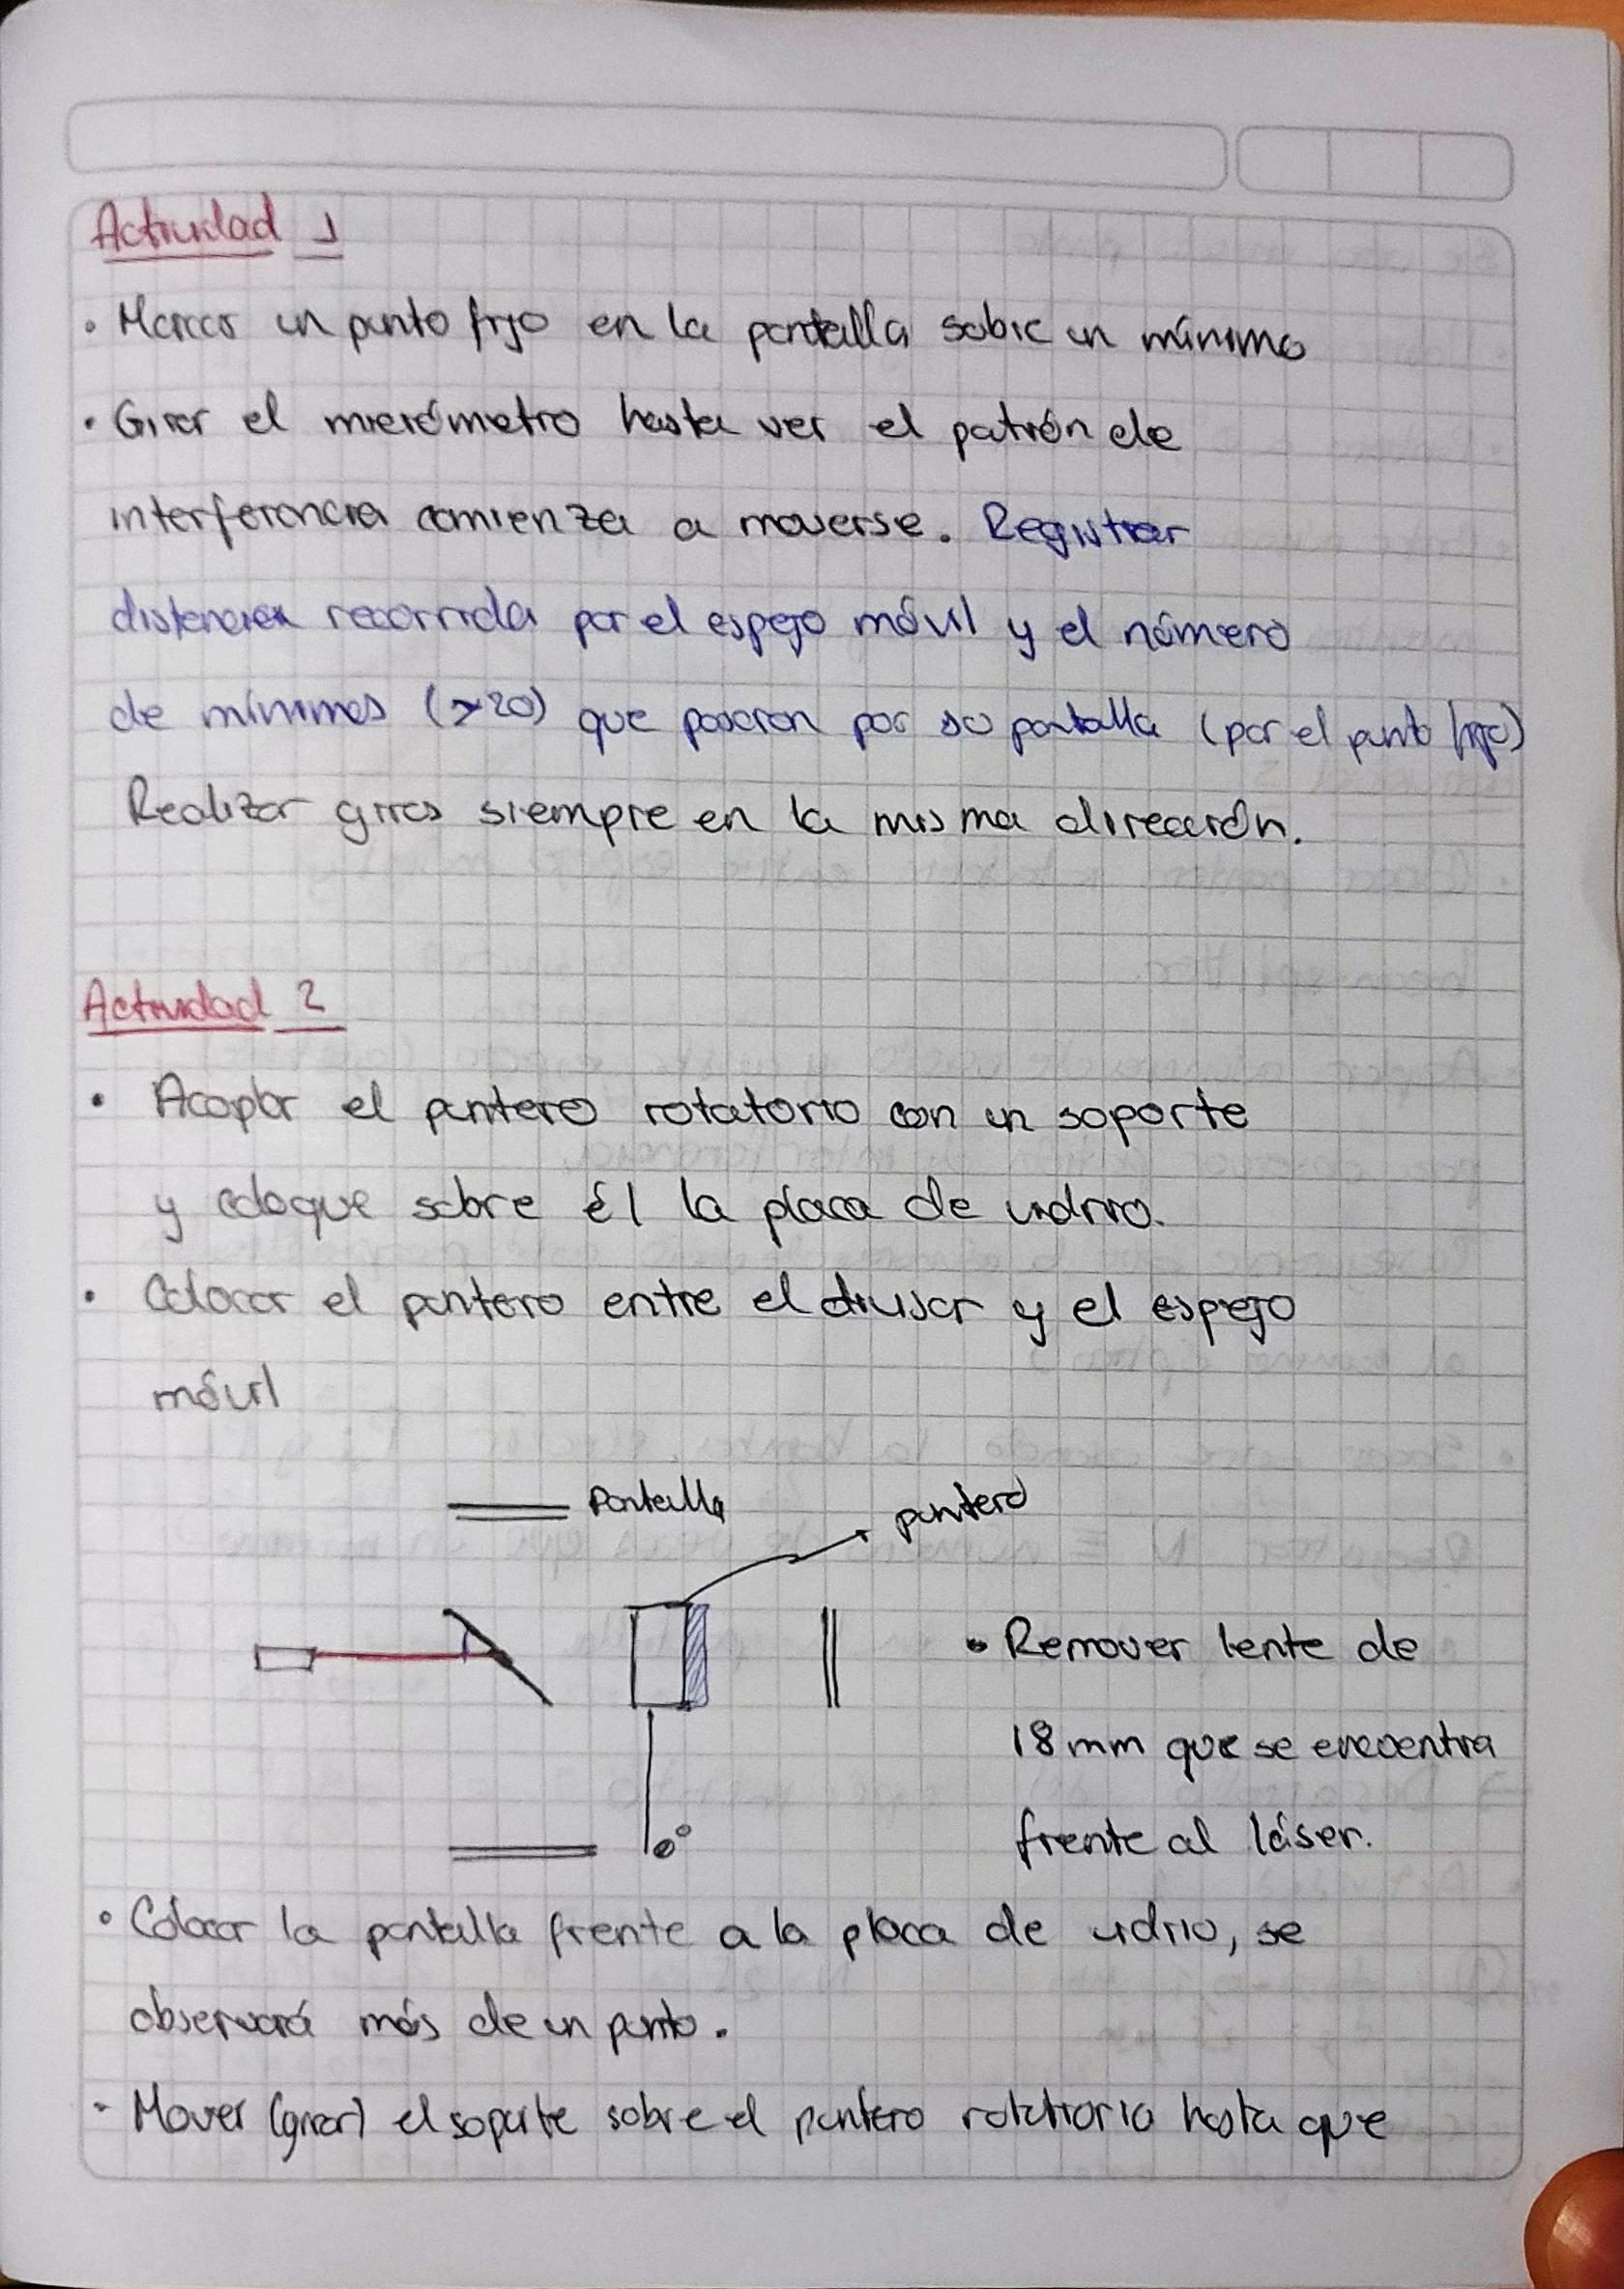 Actividad 1
• Marcar un punto fijo en la pantalla sobre un mínimo
• Girar el micrómetro hasta ver el patrón de
interferencia comienza a moverse. Registrar
distancia recorrida por el espejo móvil y el número
de mínimos (>20) que pasaron por su pantalla (por el punto fijo)
Realizar giros siempre en la misma dirección.
Actividad 2
• Acoplar el puntero rotatorio con un soporte
y coloque sobre él la placa de vidrio.
• Colocar el puntero entre el divisor y el espejo
móvil
Pantalla
puntero
• Remover lente de
18 mm que se encuentra
frente al láser.
0°
• Colocar la pantalla frente a la placa de vidrio, se
observará más de un punto.
- Mover (girar) el soporte sobre el puntero rotatorio hasta que